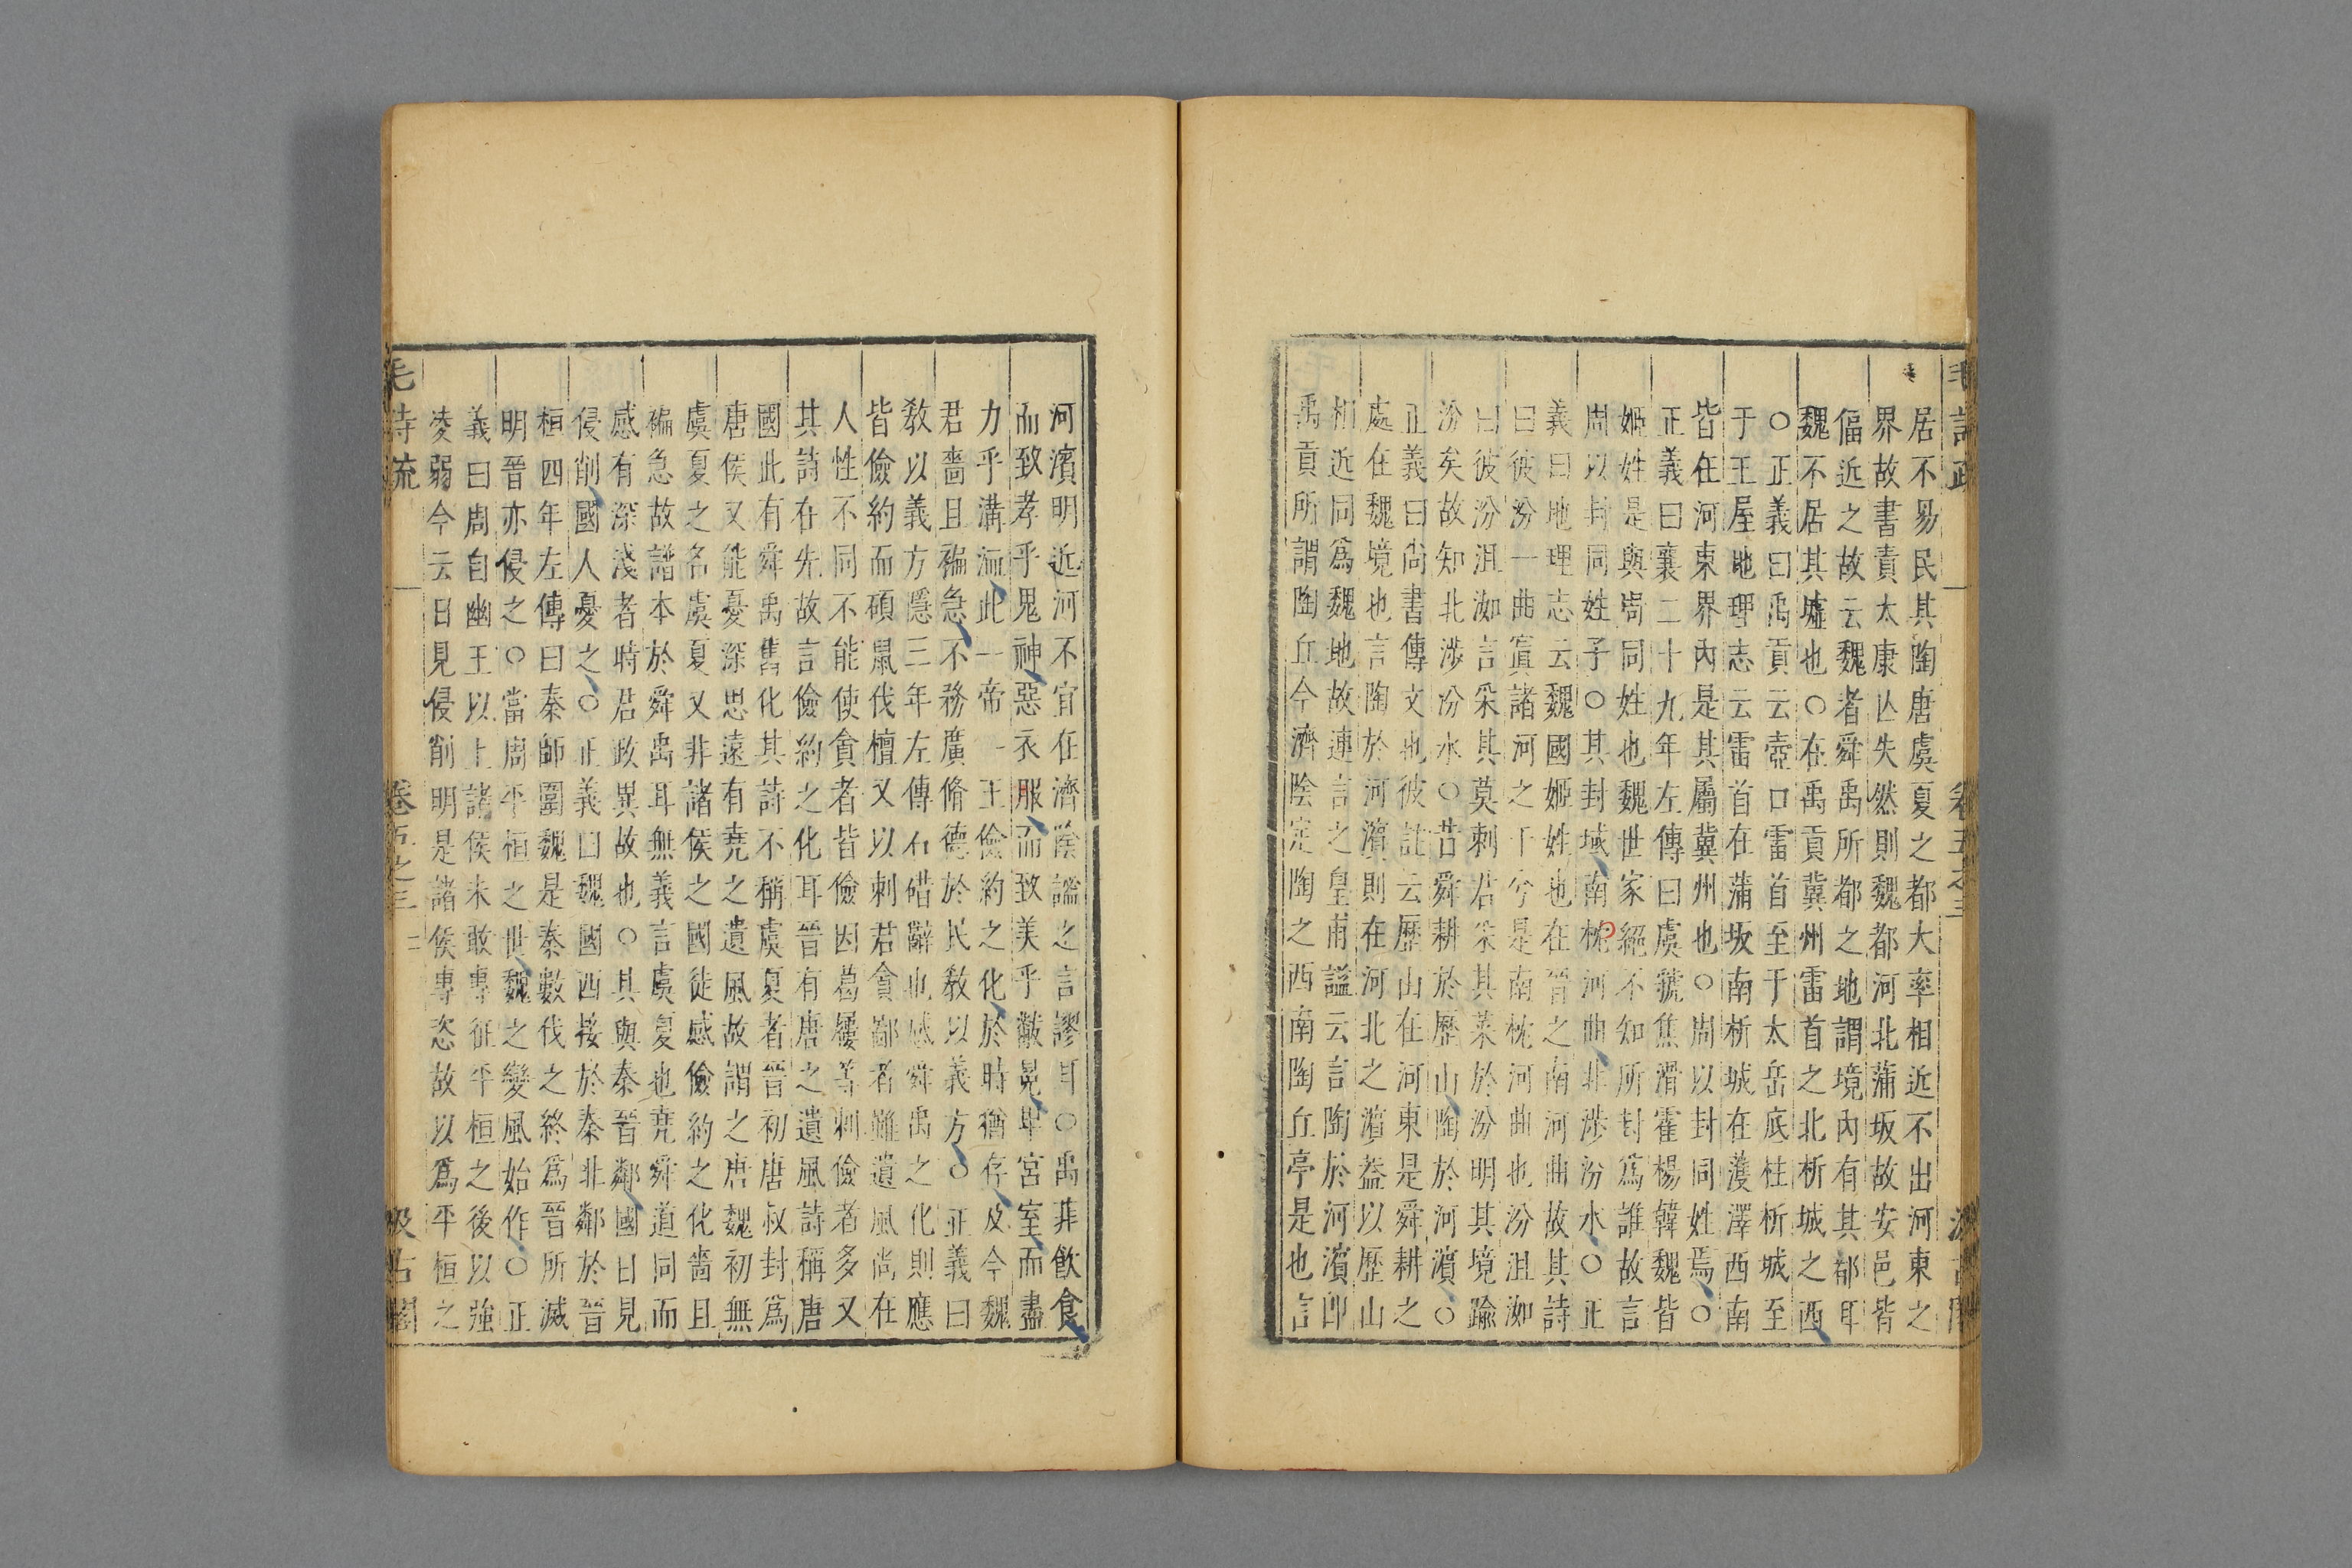 毛詩疏 一 卷五之三 汲古閣
居不易民其陶唐虞夏之都大率相近不出河東之
界故書責太康亾失然則魏都河北蒲坂故安邑皆
偪近之故云魏者舜禹所都之地謂境內有其都耳
魏不居其墟也○在禹貢冀州雷首之北析城之西
○正義曰禹貢云壺口雷首至于太岳底柱析城至
于王屋地理志云雷首在蒲坂南析城在濩澤西南
皆在河東界內是其屬冀州也○周以封同姓焉○
正義曰襄二十九年左傳曰虞虢焦滑霍楊韓魏皆
姬姓是與周同姓也魏世家絕不知所封爲誰故言
周以封同姓子○其封域南枕河曲北涉汾水○正
義曰地理志云魏國姬姓也在晉之南河曲故其詩
曰彼汾一曲寘諸河之干兮是南枕河曲也汾沮洳
曰彼汾沮洳言采其莫刺君采其菜於汾明其境踰
汾矣故知北涉汾水○昔舜耕於歷山陶於河濱○
正義曰尚書傳文也彼註云歷山在河東是舜耕之
處在魏境也言陶於河濱則在河北之濱葢以歷山
相近同爲魏地故連言之皇甫謐云言陶於河濱卽
禹貢所謂陶丘今濟陰定陶之西南陶丘亭是也言
河濱明近河不宜在濟陰謐之言謬耳○禹菲飲食
而致孝乎鬼神惡衣服而致美乎黻冕卑宮室而盡
力乎溝洫此一帝一王儉約之化於時猶存及今魏
君嗇且褊急不務廣脩德於民敎以義方○正義曰
敎以義方隱三年左傳石碏辭也感舜禹之化則應
皆儉約而碩鼠伐檀又以刺君貪鄙者雖遺風尚在
人性不同不能使貪者皆儉因葛屨等刺儉者多又
其詩在先故言儉約之化耳晉有唐之遺風詩稱唐
國此有舜禹舊化其詩不稱虞夏者晉初唐叔封爲
唐侯又能憂深思遠有堯之遺風故謂之唐魏初無
虞夏之名虞夏又非諸侯之國徒感儉約之化嗇且
褊急故譜本於舜禹耳無義言虞夏也堯舜道同而
感有深淺者時君政異故也○其與秦晉鄰國日見
侵削國人憂之○正義曰魏國西接於秦北鄰於晉
桓四年左傳曰秦師圍魏是秦數伐之終爲晉所滅
明晉亦侵之○當周平桓之世魏之變風始作○正
義曰周自幽王以上諸侯未敢專征平桓之後以強
凌弱今云日見侵削明是諸侯專恣故以爲平桓之
毛詩疏 一 卷五之三 二 汲古閣